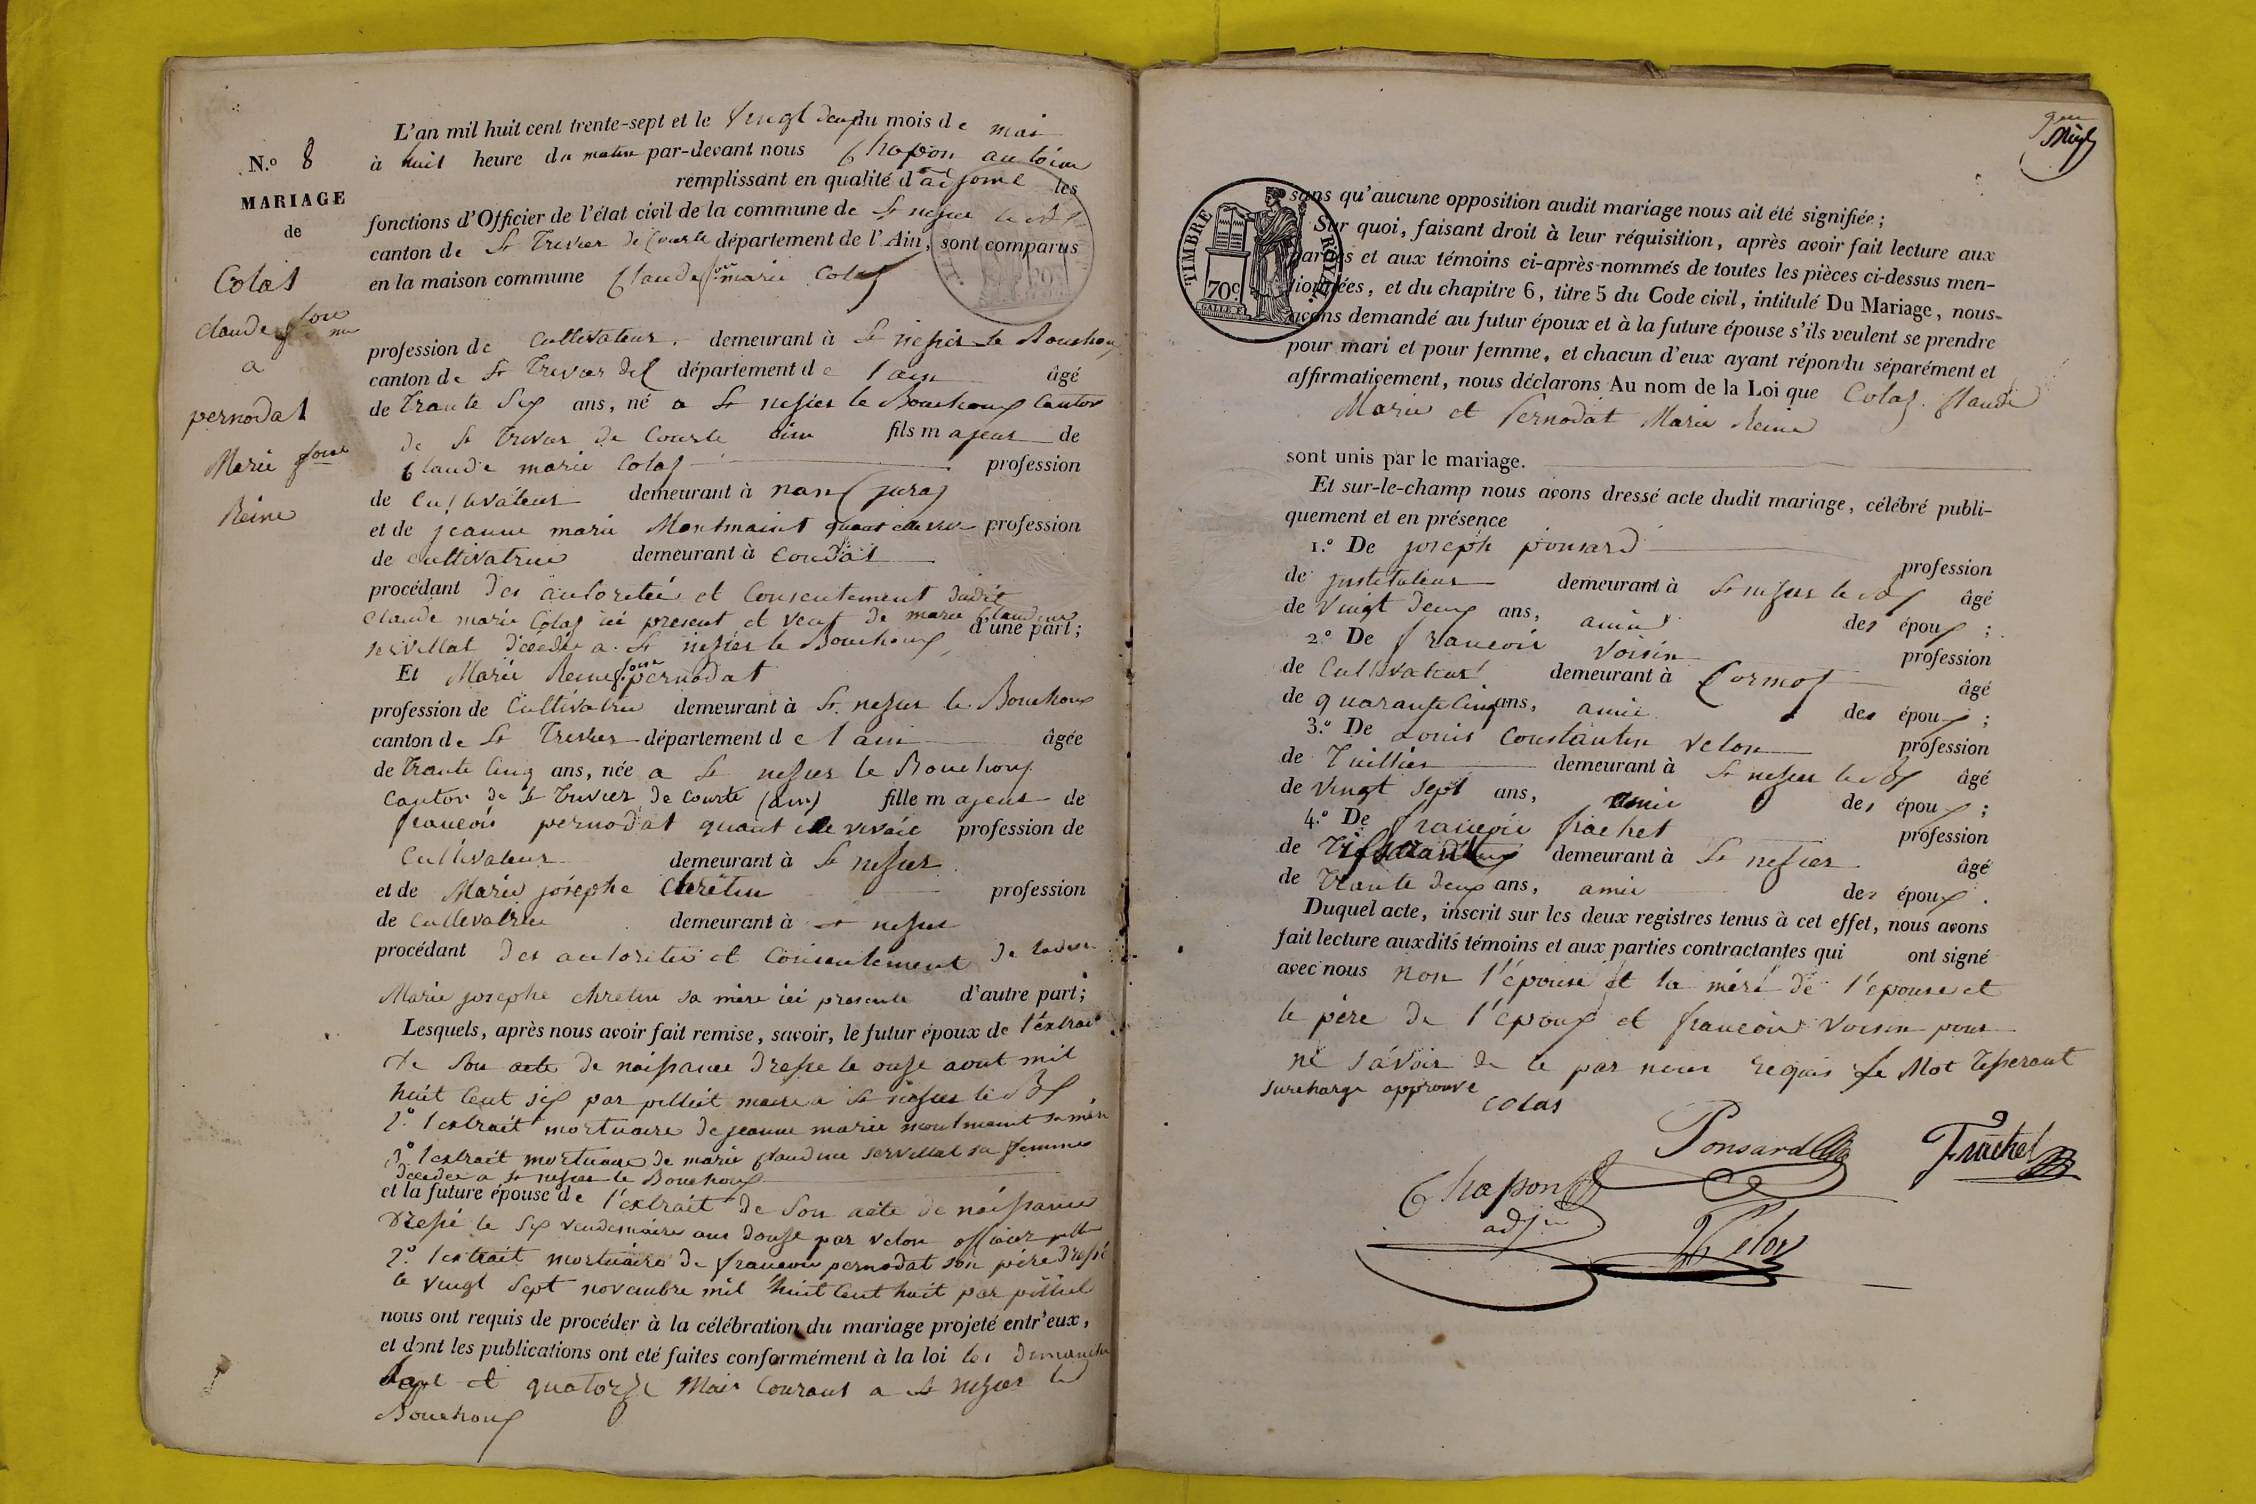 N.o 8
MARIAGE
de
Colas
Claude
a
pernodat
Marie
Reine
L'an mil huit cent trente-sept et le vingt deux du mois de mai
à huit heure du matin par-devant nous Chapon antoine
remplissant en qualité d'adjoint les
fonctions d'Officier de l'état civil de la commune de St nesier le
canton de St Trivier de Courte département de l'Ain, sont comparus
en la maison commune Claude marie Colas
profession de Cultivateur demeurant à St nesier le Bouchoux
canton de St Trivier de C département de l ain âgé
de trante six ans, né a St nesier le Bouchoux Canton
de St Trivier de Courte ain fils majeur de
Claude marie Colas profession
de Cultivateur demeurant à nanc jura
et de jeanne marie Montmaint profession
de cultivatrice demeurant à Condat
procédant des autoritée et consentement dudit
Claude marie Colas ici present et veuf de marie Claudine
servillat décédée a St nesier le Bouchoux d'une part;
Et Marie Reine pernodat
profession de Cultivatrice demeurant à St. nesier le Bouchoux
canton de St Trivier département de l ain âgée
de trante cinq ans, née a St nesier le Bouchoux
Canton de St Trivier de Courte (ain) fille majeure de
francois pernodat quant il vivait profession de
Cultivateur demeurant à St nesier
et de Marie josephe Chrêtin profession
de Cultivatrice demeurant à St nesier
procédant des autoritée et Consentement de ladite
Marie josephe chretin sa mère ici presente d'autre part;
Lesquels, après nous avoir fait remise, savoir, le futur époux de l'éxtrait
de son acte de naissance dressé le onse aout mil
huit cent six par pilliet maire a St nesier le
2.o l extrait mortuaire de jeanne marie montmaint sa mère
3.o l extrait mortuaire de marie Claudine servillat sa femme
décédée a St nesier le Bouchoux
et la future épouse de l'extrait de son acte de naissance
dressé le six vendemiaire an douse par velon officier
2.o l extrait mortuaire de francois pernodat son père dressé
le vingt sept novembre mil huit cent huit par
nous ont requis de procéder à la célébration du mariage projeté entr'eux,
et dont les publications ont été faites conformément à la loi les dimanche
sept et quatorze Mais Courant a St nesier le
Bouchoux
TIMBRE ROYAL
70c
sans qu'aucune opposition audit mariage nous ait été signifiée;
Sur quoi, faisant droit à leur réquisition, après avoir fait lecture aux
parties et aux témoins ci-après nommés de toutes les pièces ci-dessus men-
tionnées, et du chapitre 6, titre 5 du Code civil, intitulé Du Mariage, nous
avons demandé au futur époux et à la future épouse s'ils veulent se prendre
pour mari et pour femme, et chacun d'eux ayant répondu séparément et
affirmativement, nous déclarons Au nom de la Loi que Colas Claude
Marie et Pernodat Marie Reine
sont unis par le mariage.
Et sur-le-champ nous avons dressé acte dudit mariage, célébré publi-
quement et en présence
1.o De joseph ponsard profession
de instituteur demeurant à St nesier le âgé
de vingt deux ans, amie des époux;
2.o De francois Voisin profession
de Cultivateur demeurant à Cormoz âgé
de quarante cinq ans, amie des époux;
3.o De Louis Constantin velon profession
de Tuillier demeurant à St nesier le âgé
de vingt sept ans, amie des époux;
4.o De francois frachet profession
de demeurant à St nesier âgé
de trante deux ans, amie des époux.
Duquel acte, inscrit sur les deux registres tenus à cet effet, nous avons
fait lecture auxdits témoins et aux parties contractantes qui ont signé
avec nous non l'épouse et la méré de l'épouse et
le pére de l'époux et francois voisin pour
ne savoir de ce par nous requis le Mot Tisserant
surcharge approuvé
colas
Ponsard
Frachet
Chapon
adj
Velon